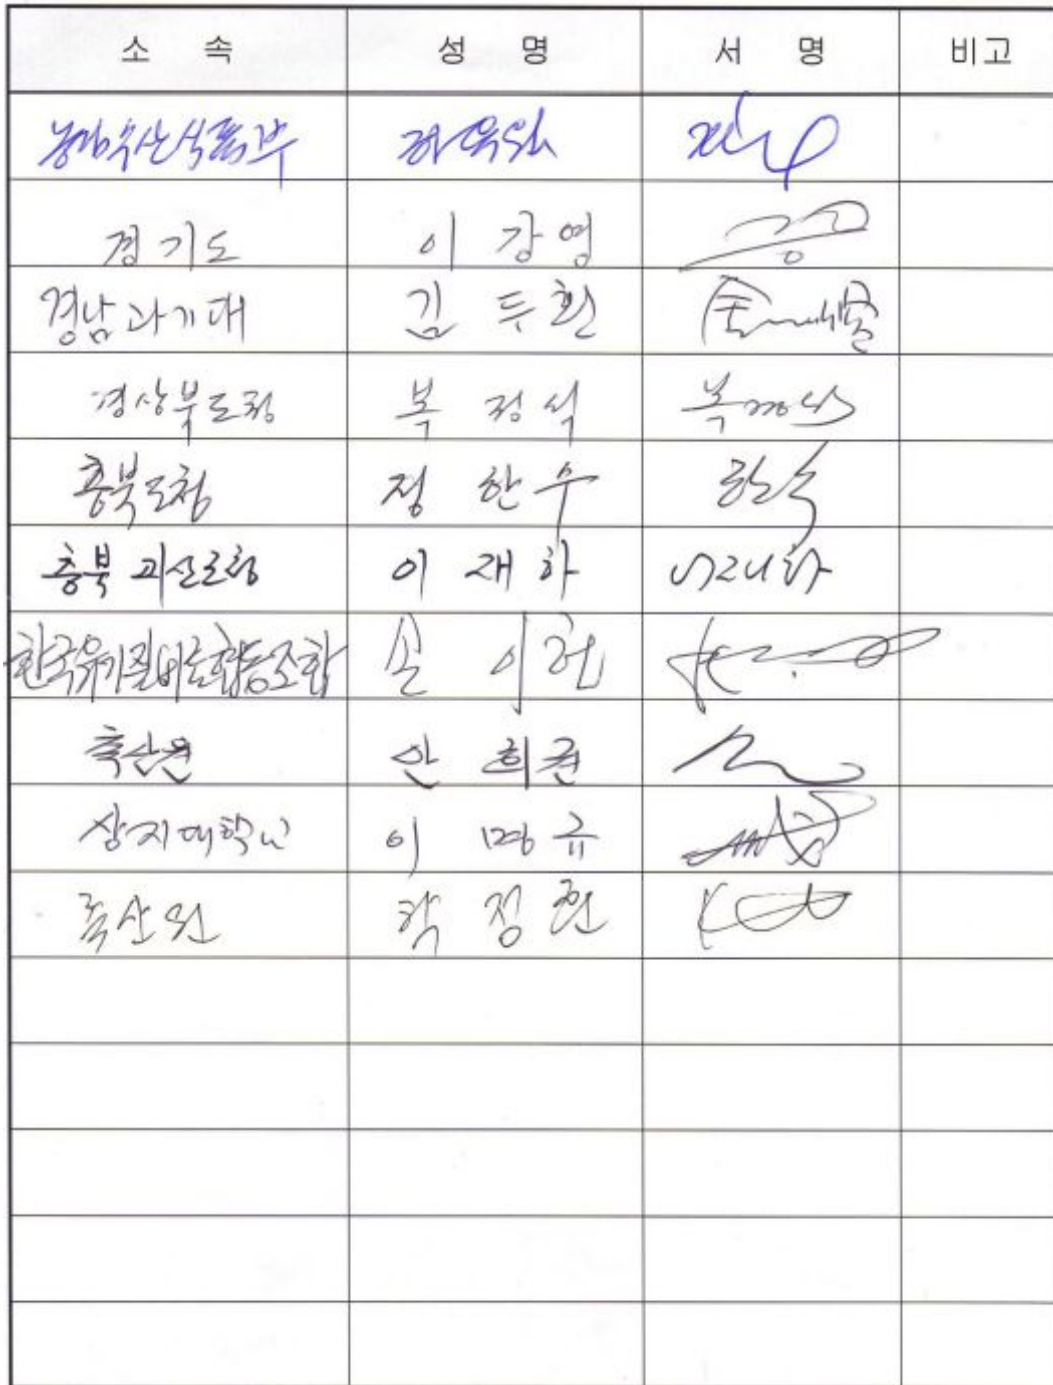 소 속 성 명 서 명 비고
농림수산식품부
경기도 이 강 영
경남과기대 김 두 환
경상북도청 복 정 식 복정식
충북도청 정 한 수 한수
충북 괴산군청 이 재 하 이재하
한국유기질비료협동조합 손 이 헌
축산원 안 희 권
상지대학교 이 명 규
축산원 곽 정 훈